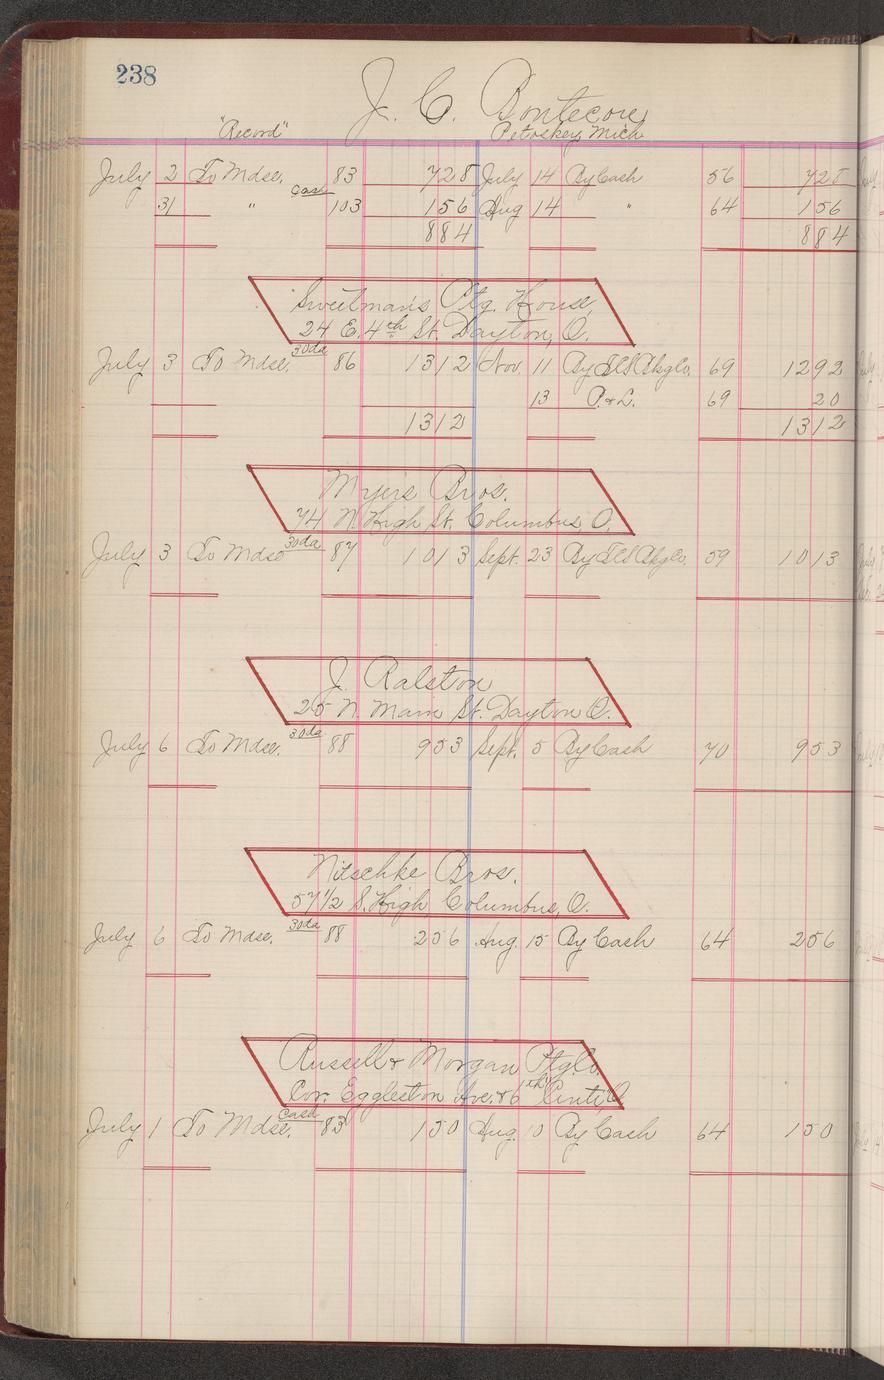 238
J. C. Bontecou
"Record" Petoskey, Mich
July 2 To Mdse. 83 728 July 14 By Cash 56 728
Cash
31 " 103 156 Aug 14 " 64 156
884 884
Sweetman's Ptg. House,
24 E. 4th St. Dayton, O.
30da
July 3 To Mdse. 86 1312 Nov. 11 By 69 1292
13 P. & L. 69 20
1312 1312
Myers Bros.
74 N. High St. Columbus, O.
30da
July 3 To Mdse 87 1013 Sept. 23 By 59 1013
J. Ralston
25 N. Main St. Dayton O.
30da
July 6 To Mdse. 88 953 Sept. 5 By Cash 70 953
Nitschke Bros.
57 1/2 S. High, Columbus, O.
30da
July 6 To Mdse. 88 256 Aug. 15 By Cash 64 256
Russell & Morgan Ptg. Co.
Cor. Eggleston Ave. & 6th Cinti, O
Cash
July 1 To Mdse. 83 150 Aug. 10 By Cash 64 150